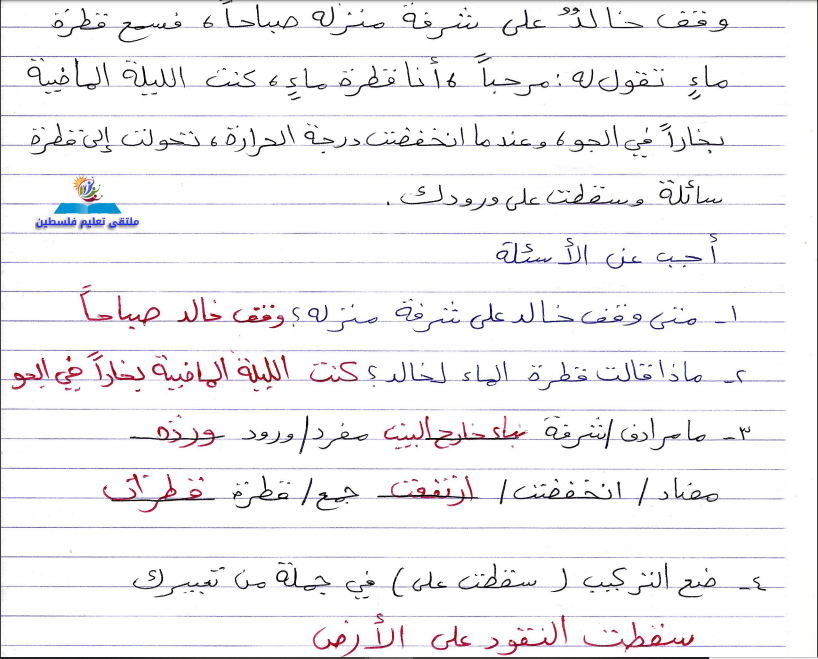 وقف خالدٌ على شرفة منزله صباحاً، فسمع قطرة
ماءٍ تقول له: مرحباً، أنا قطرة ماءٍ، كنت الليلة الماضية
بخاراً في الجو، وعندما انخفضت درجة الحرارة، تحولت إلى قطرة
سائلة وسقطت على ورودك.
ملتقى تعليم فلسطين
أجب عن الأسئلة
١- متى وقف خالد على شرفة منزله؟ وقف خالد صباحاً
٢- ماذا قالت قطرة الماء لخالد؟ كنت الليلة الماضية بخاراً في الجو
٣- ما مرادف/شرفة بناء خارج البيت مفرد/ورود وردة
مضاد/انخفضت/ ارتفعت جمع/قطرة قطرات
٤- ضع التركيب (سقطت على) في جملة من تعبيرك
سقطت النقود على الأرض